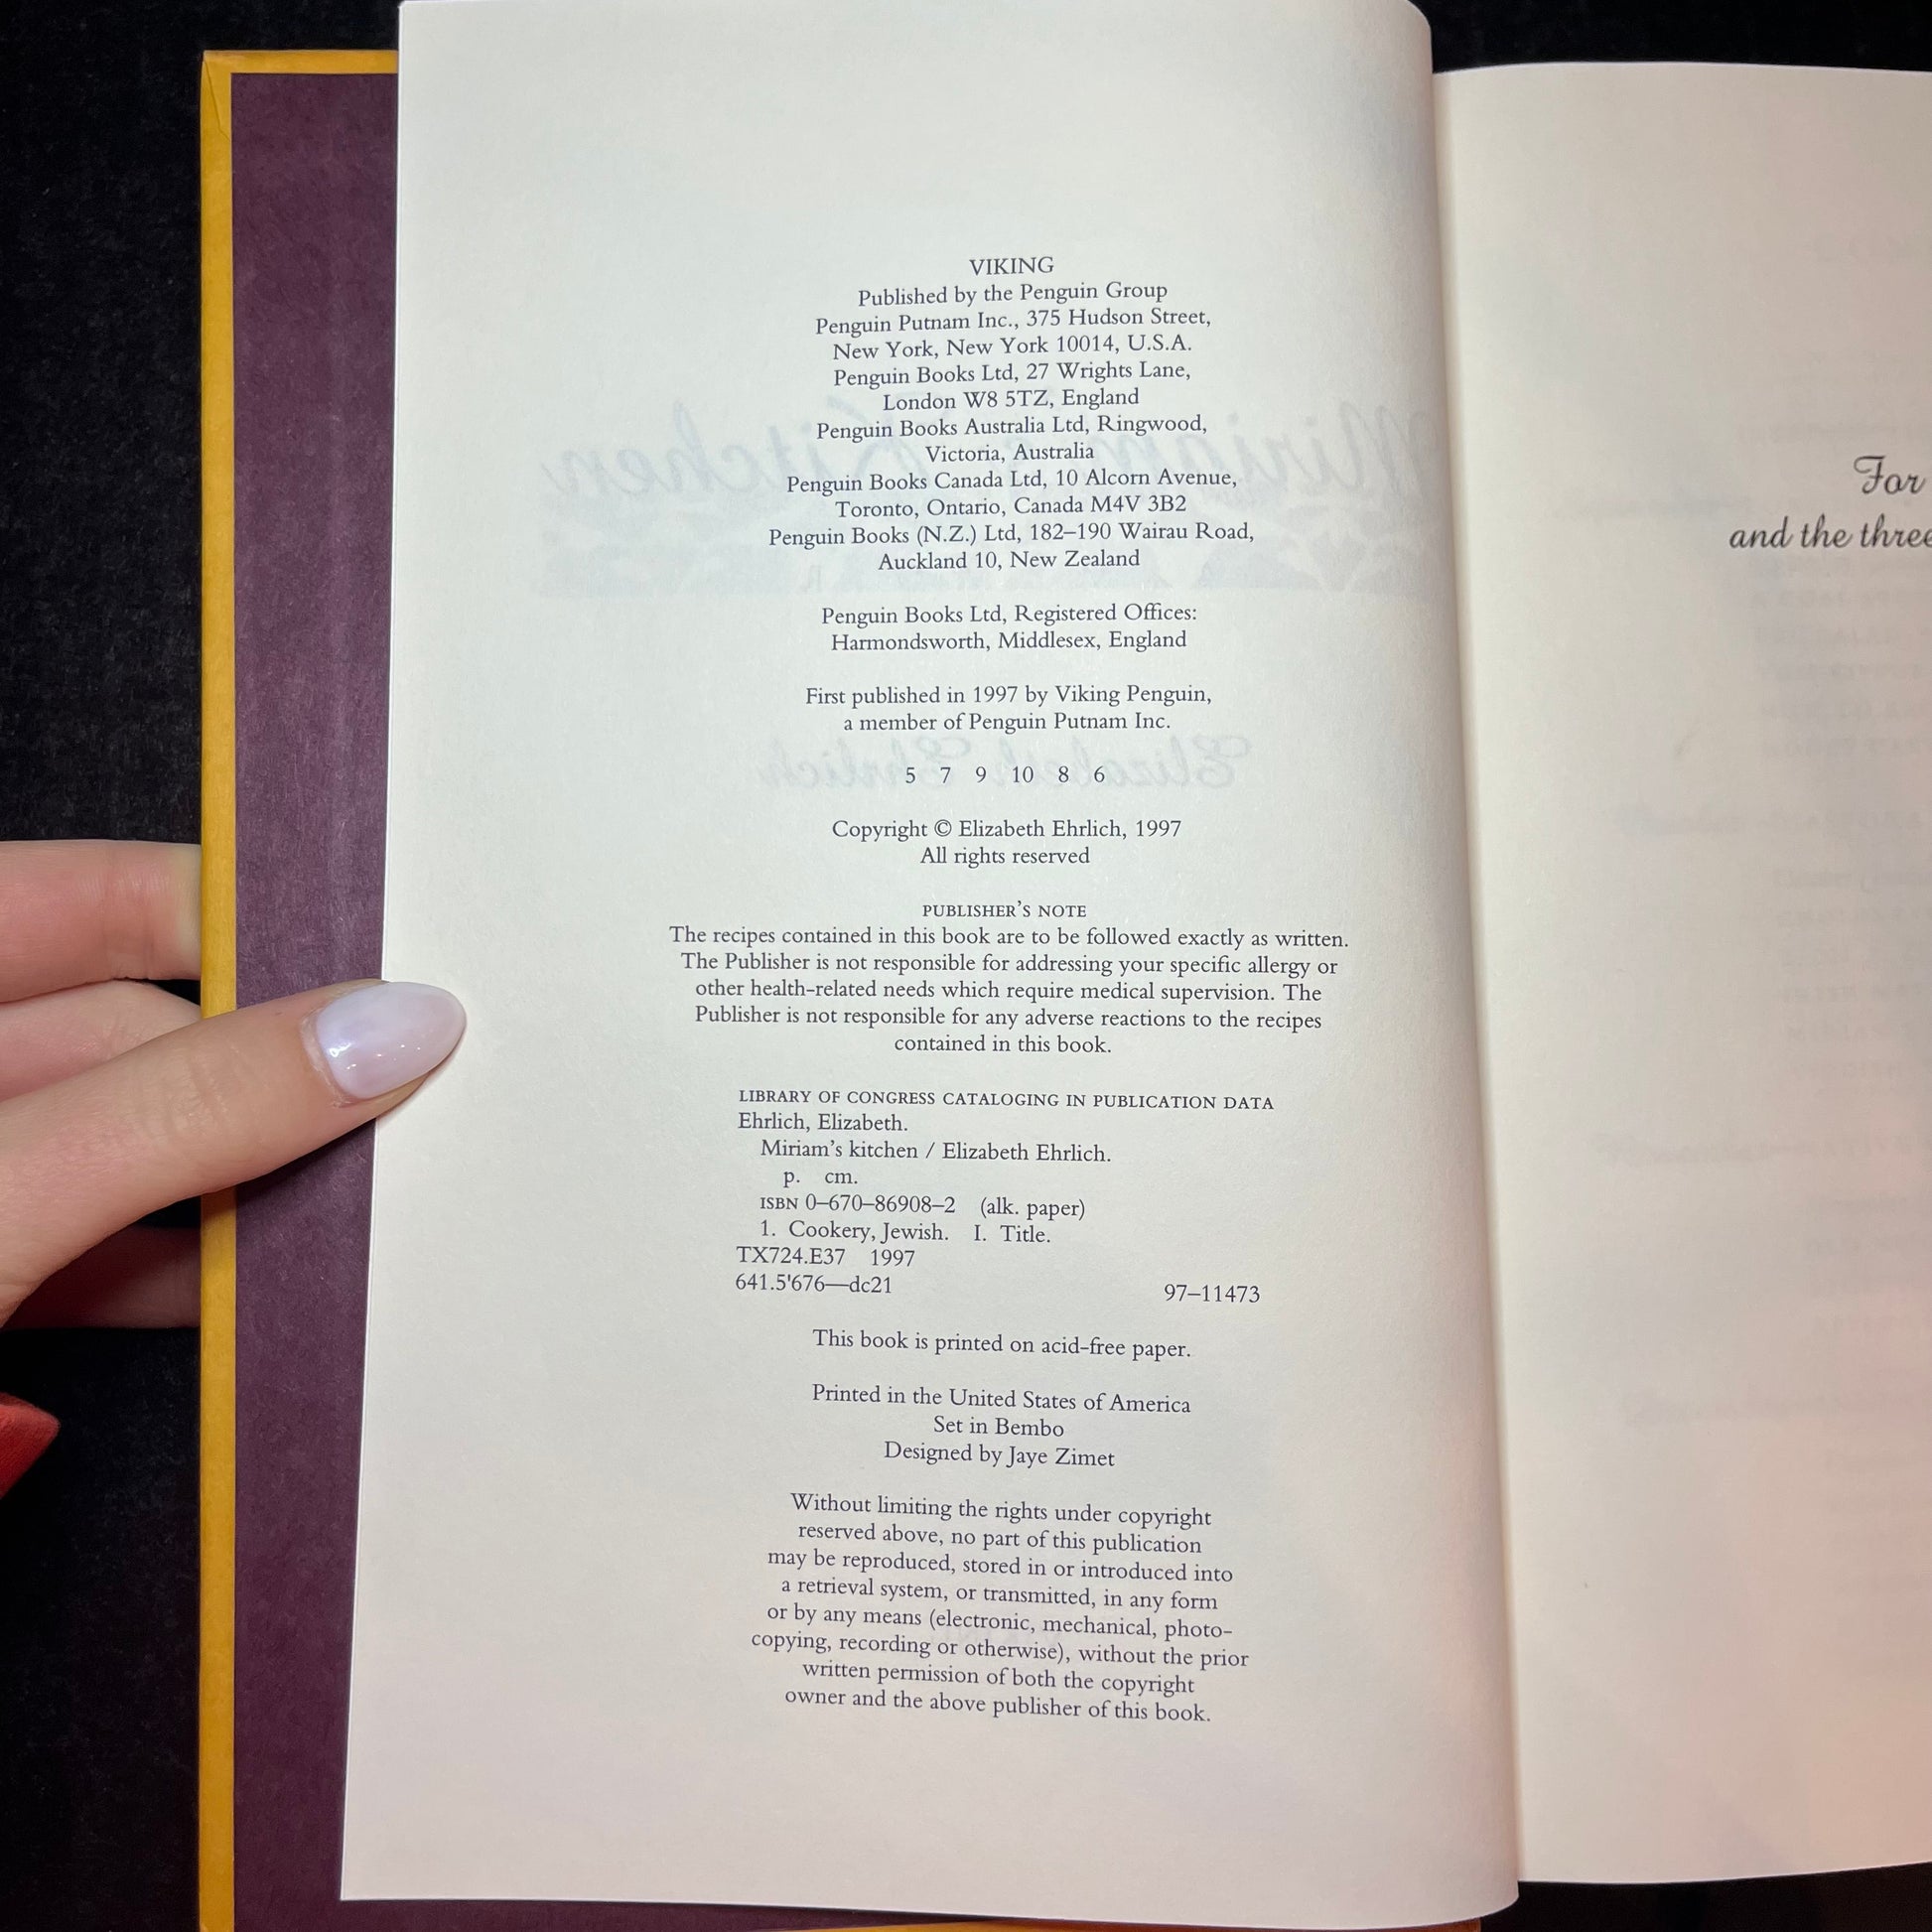 VIKING
Published by the Penguin Group
Penguin Putnam Inc., 375 Hudson Street,
New York, New York 10014, U.S.A.
Penguin Books Ltd, 27 Wrights Lane,
London W8 5TZ, England
Penguin Books Australia Ltd, Ringwood,
Victoria, Australia
Penguin Books Canada Ltd, 10 Alcorn Avenue,
Toronto, Ontario, Canada M4V 3B2
Penguin Books (N.Z.) Ltd, 182–190 Wairau Road,
Auckland 10, New Zealand
Penguin Books Ltd, Registered Offices:
Harmondsworth, Middlesex, England
First published in 1997 by Viking Penguin,
a member of Penguin Putnam Inc.
5 7 9 10 8 6
Copyright © Elizabeth Ehrlich, 1997
All rights reserved
PUBLISHER'S NOTE
The recipes contained in this book are to be followed exactly as written.
The Publisher is not responsible for addressing your specific allergy or
other health-related needs which require medical supervision. The
Publisher is not responsible for any adverse reactions to the recipes
contained in this book.
LIBRARY OF CONGRESS CATALOGING IN PUBLICATION DATA
Ehrlich, Elizabeth.
Miriam's kitchen / Elizabeth Ehrlich.
p. cm.
ISBN 0–670–86908–2 (alk. paper)
1. Cookery, Jewish. I. Title.
TX724.E37 1997
641.5'676—dc21 97–11473
This book is printed on acid-free paper.
Printed in the United States of America
Set in Bembo
Designed by Jaye Zimet
Without limiting the rights under copyright
reserved above, no part of this publication
may be reproduced, stored in or introduced into
a retrieval system, or transmitted, in any form
or by any means (electronic, mechanical, photo-
copying, recording or otherwise), without the prior
written permission of both the copyright
owner and the above publisher of this book.
For
and the three